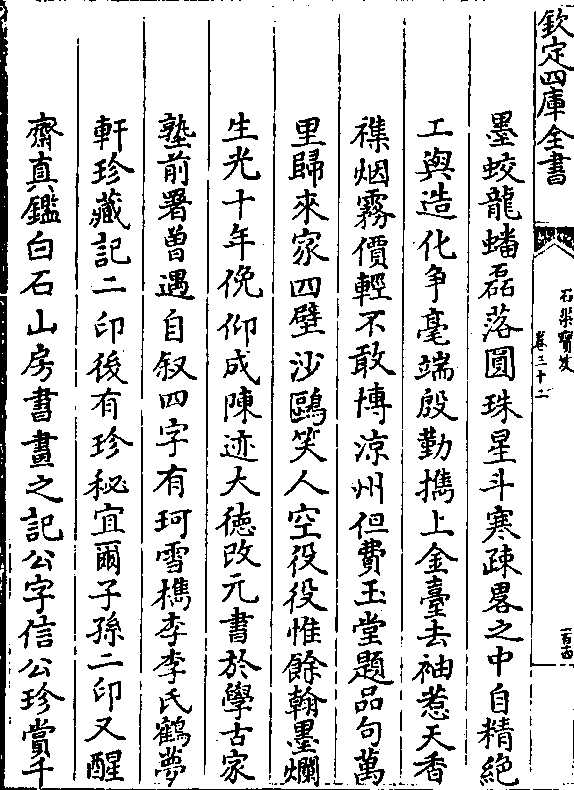 欽定四庫全書
石渠寶笈
卷三十二
百古
墨蛟龍蟠磊落圓珠星斗寒疎畧之中自精絶
工與造化争毫端殷勤攜上金臺去袖惹天香
襍烟霧價輕不敢博涼州但費玉堂題品句萬
里歸來家四壁沙鷗笑人空役役惟餘翰墨爛
生光十年俛仰成陳迹大徳改元書於學古家
塾前署曽遇自叙四字有珂雪檇李李氏鶴夢
軒珍藏記二印後有珍秘宜爾子孫二印又醒
齋真鑑白石山房書畫之記公字信公珍賞千